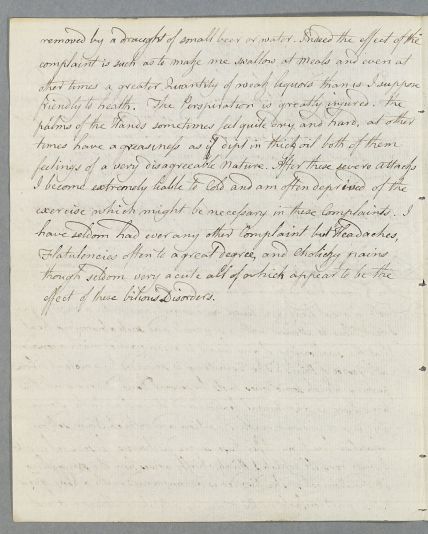 removed by a draught of small beer or water. Indeed the effect of the
complaint is such as to make me swallow at meals and even at
other times a greater Quantity of weak liquors than is I suppose
friendly to health. The Perspiration is greatly injured. the
palms of the Hands sometimes feel quite dry and hard, at other
times have a greasiness as if dipt in thick oil both of them
feelings of a very disagreeable Nature. After these severe Attacks
I become extremely liable to Cold and am often deprived of the
exercise which might be necessary in these Complaints. I
have seldom had ever any other Complaint but Headaches,
Flatulencies often to a great Degree, and Cholicky pains
though seldom very acute all of which appear to be the
effect of these bilious Disorders.